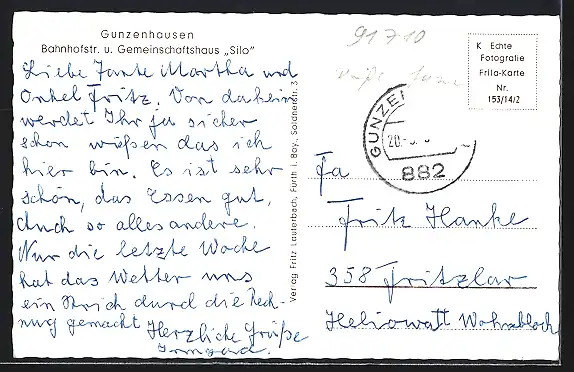 Gunzenhausen
Bahnhofstr. u. Gemeinschaftshaus „Silo"
Liebe Tante Martha und
Onkel Fritz. Von daheim
werdet Ihr ja sicher
schon wißen das ich
hier bin. Es ist sehr
schön, das Essen gut,
Auch so alles andere.
Nur die letzte Woche
hat das Wetter uns
ein Strich durch die Rech-
nung gemacht Herzliche Grüße
Irmgard.
Verlag Fritz Lauterbach, Fürth i. Bay., Soldnerstr. 3
91710
K Echte
Fotografie
Frila-Karte
Nr.
153/14/2
GUNZE
20.
882
Fa
Fritz Hanke
358 Fritzlar
Heliowatt Wohnblock